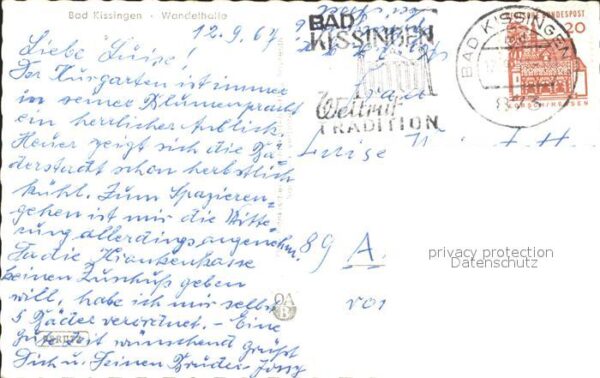 Bad Kissingen · Wandelhalle
12.9.67
Liebe Luise!
Der Kurgarten ist immer
in seiner Blumenpracht
ein herrlicher Anblick.
Heuer zeigt sich die Bä-
derstadt schon herbstlich
kühl. Zum Spazieren-
gehen ist mir die Witte-
rung allerdings angenehm.
Da die Krankenkasse
keinen Zuschuß geben
will, habe ich mir selbst
5 Bäder verordnet. – Eine
gute Zeit wünschend grüßt
Dich u. Deinen Bruder
BAD
KISSINGEN
Weltruf
TRADITION
BAD KISSINGEN
BUNDESPOST
20
Luise
89 A.
privacy protection
Datenschutz